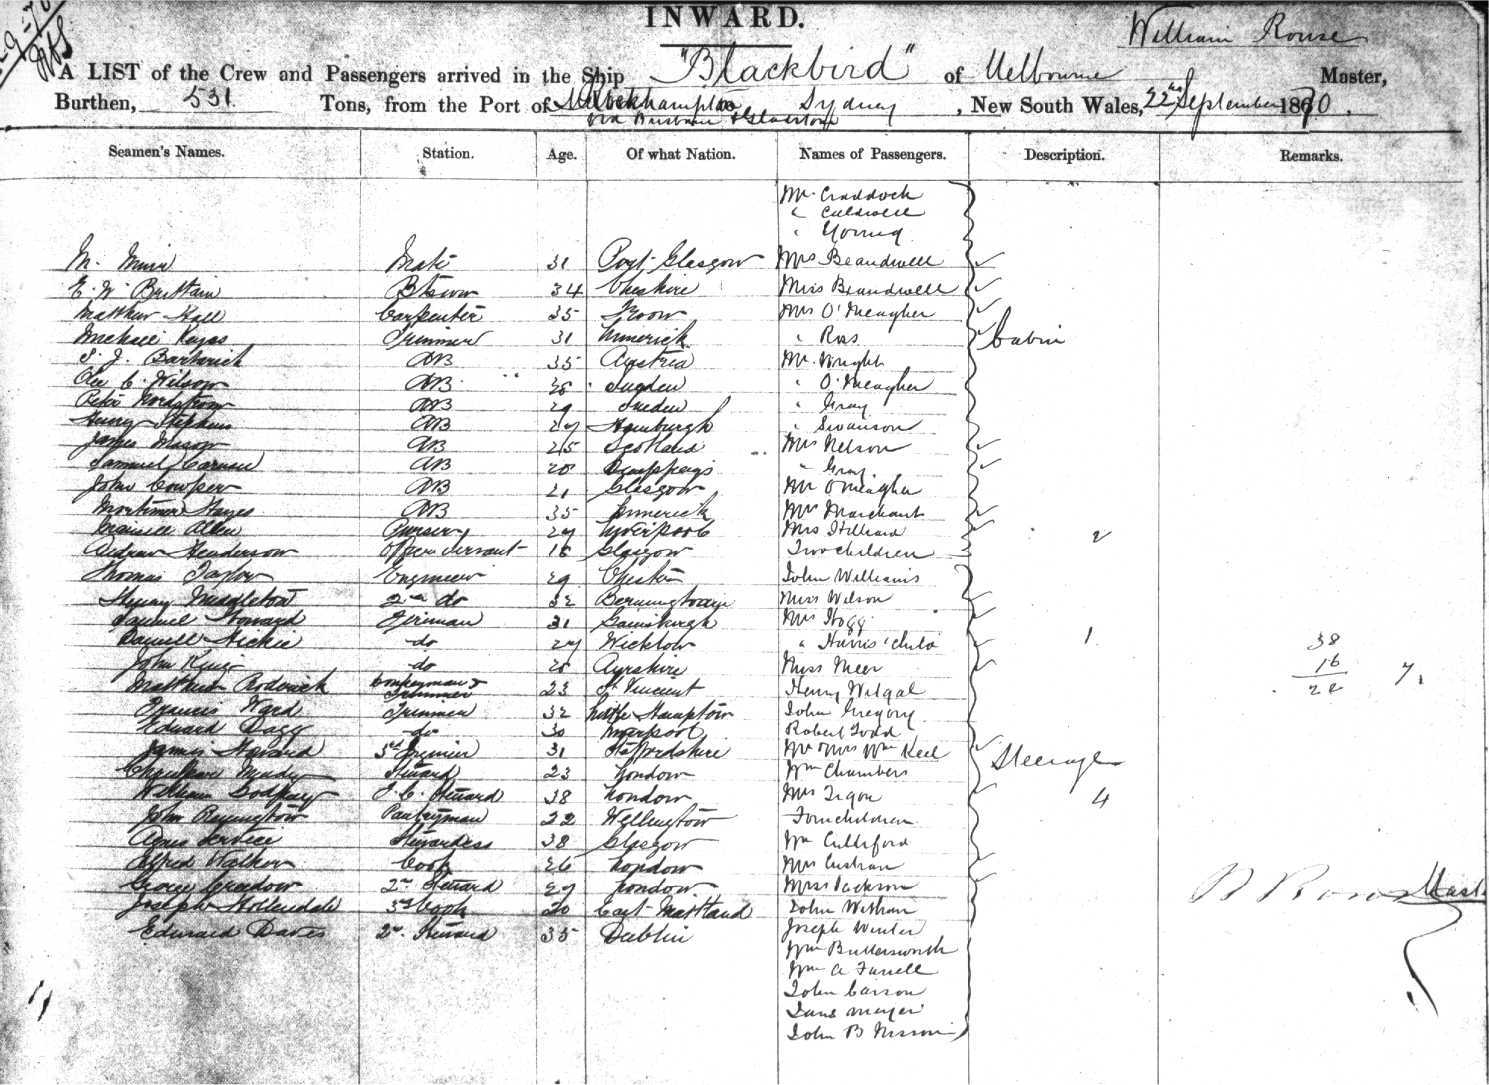 INWARD.
William Rouse
A LIST of the Crew and Passengers arrived in the Ship "Blackbird" of Melbourne Master,
Burthen, 531 Tons, from the Port of Rockhampton to Sydney, New South Wales, 22nd September 1870.
via Brisbane & Gladstone
Seamen's Names. Station. Age. Of what Nation. Names of Passengers. Description. Remarks.
Mr Craddock
" Caldwell
" Young
M. Muir Mate 31 Port Glasgow Mrs Beardwell
E. W. Brittain Btswn 34 Cheshire Miss Beardwell
Matthew Hall Carpenter 35 Troon Mrs O'Meagher
Michael Keyas Trimmer 31 Limerick " Ross Cabin
S. J. AB 35 Austria Mr Wright
Ole C. Wilson AB 28 Sweden " O'Meagher
Peter Nordstrom AB 29 Sweden " Gray
Henry Stephens AB 27 Hamburgh " Swanson
James Mason AB 25 Scotland Mrs Nelson
Samuel AB 28 " Gray
John Cowper AB 21 Glasgow Mr O'Meagher
Mortimer Hayes AB 35 Limerick Mrs Marchant
Allen Purser 27 Liverpool Mrs Hilliard 2
Andrew Henderson Officers Servant 18 Glasgow Two children
Thomas Taylor Engineer 29 Chester John Williams
Henry Middleton 2nd do 32 Miss Wilson
Samuel Howard Fireman 31 Gainsburgh Mrs Hogg
Daniel Hickie do 27 Wicklow " Harris & child 1 38
John King do 28 Ayrshire Miss Meer 16
Matthew Roderick Donkeyman & Trimmer 23 St Vincent Henry Wilgal 22 7
Francis Ward Trimmer 32 Little Hampton John Gregory
Edward Dagg do 30 Liverpool Robert Todd
James Howard 3rd 31 Staffordshire Mr & Mrs Wm Keel Steerage
Mudy Steward 23 London Wm Chambers
William Godfrey F. C. Steward 38 London Mrs Tigou 4
John Pantryman 22 Wellington Four children
Agnes Service Stewardess 38 Glasgow Wm Culliford
Alfred Walker Cook 26 London Mrs
George 2nd Steward 27 London Miss Jackson
Joseph Hollendale 3rd Cook 20 East Maitland John Witham
Edward Davis 2nd Steward 35 Dublin Joseph Winter
Wm Buttersworth
Wm A Farrell
John Carson
Jans Meyer
John B
W Rouse Master